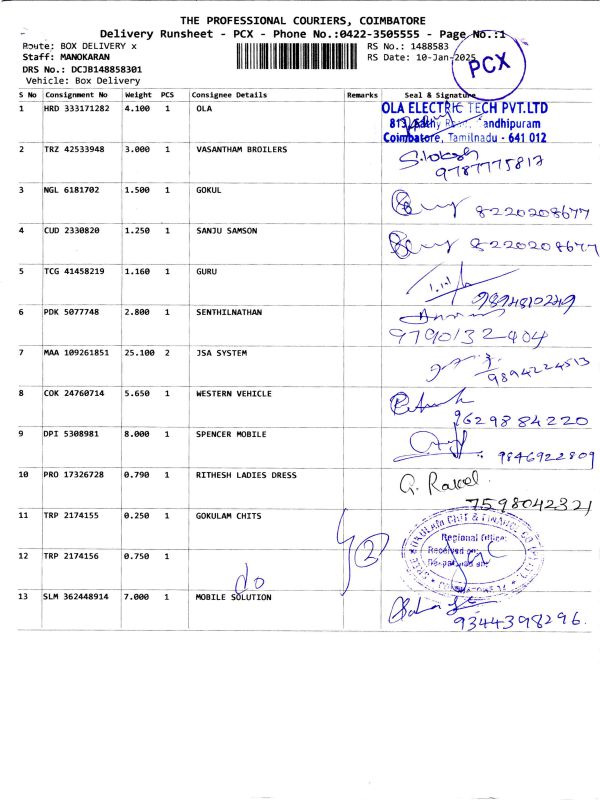 THE PROFESSIONAL COURIERS, COIMBATORE
Delivery Runsheet - PCX - Phone No.:0422-3505555 - Page No.:1
Route: BOX DELIVERY x
RS No.: 1488583
Staff: MANOKARAN
RS Date: 10-Jan-2025
PCX
DRS No.: DCJB148858301
Vehicle: Box Delivery
S No Consignment No Weight PCS Consignee Details Remarks Seal & Signature
1 HRD 333171282 4.100 1 OLA
OLA ELECTRIC TECH PVT.LTD
813, Sathy Road, Gandhipuram
Coimbatore, Tamilnadu - 641 012
2 TRZ 42533948 3.000 1 VASANTHAM BROILERS
9787775817
3 NGL 6181702 1.500 1 GOKUL
8220208677
4 CUD 2330820 1.250 1 SANJU SAMSON
8220208677
5 TCG 41458219 1.160 1 GURU
9894810249
6 PDK 5077748 2.800 1 SENTHILNATHAN
9790132404
7 MAA 109261851 25.100 2 JSA SYSTEM
9894224513
8 COK 24760714 5.650 1 WESTERN VEHICLE
9629884220
9 DPI 5308981 8.000 1 SPENCER MOBILE
9846922809
10 PRO 17326728 0.790 1 RITHESH LADIES DRESS
G. Rakel
7598042321
11 TRP 2174155 0.250 1 GOKULAM CHITS
2
Regional Office
Received on
12 TRP 2174156 0.750 1
do
13 SLM 362448914 7.000 1 MOBILE SOLUTION
9344398296.